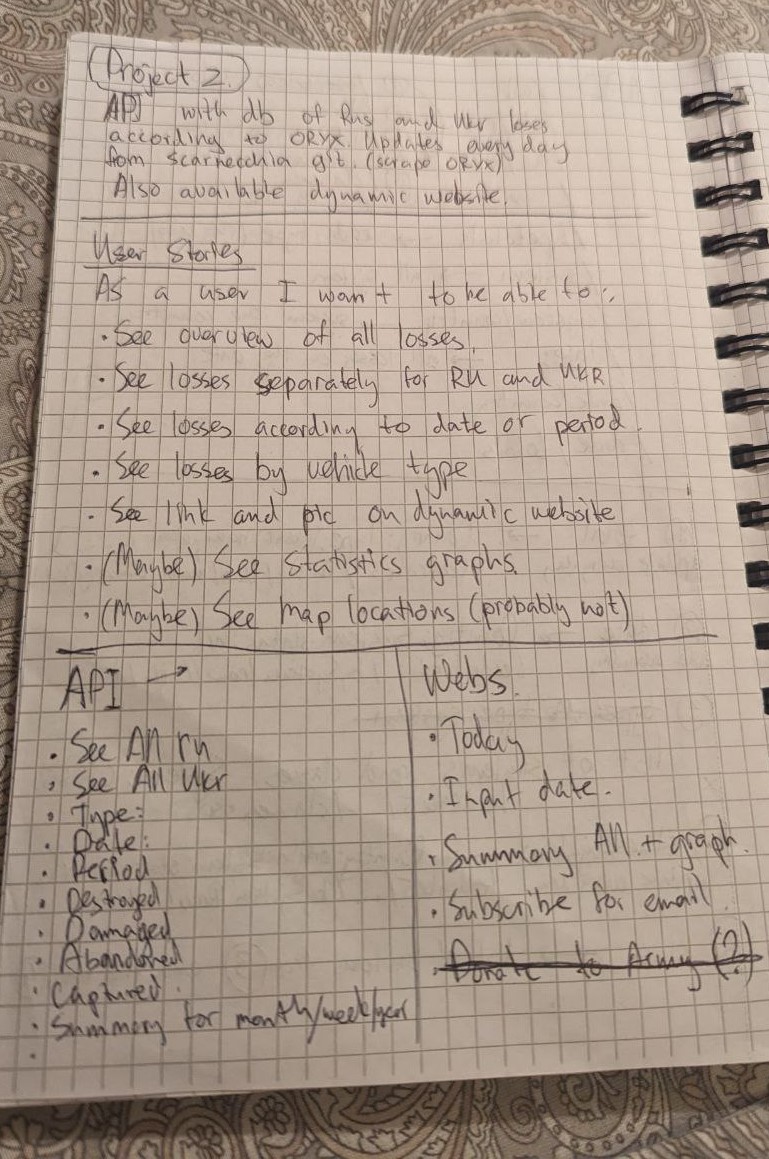 (Project 2.)
API with db of Rus and Ukr loses
according to ORYX. Updates every day
from scarnecchia git. (scrape ORYX)
Also available dynamic website.
User Stories
As a user I want to be able to:
· See overview of all losses.
· See losses separately for RU and UKR
· See losses according to date or period.
· See losses by vehicle type
· See link and pic on dynamic website
· (Maybe) See statistics graphs.
· (Maybe) See map locations (probably not)
API →
· See All ru
· See All Ukr
· Type:
· Date:
· Period
· Destroyed
· Damaged
· Abandoned
· Captured.
· Summery for month/week/year
Webs.
· Today
· Input date.
· Summary All + graph.
· Subscribe for email.
· Donate to Army (?)